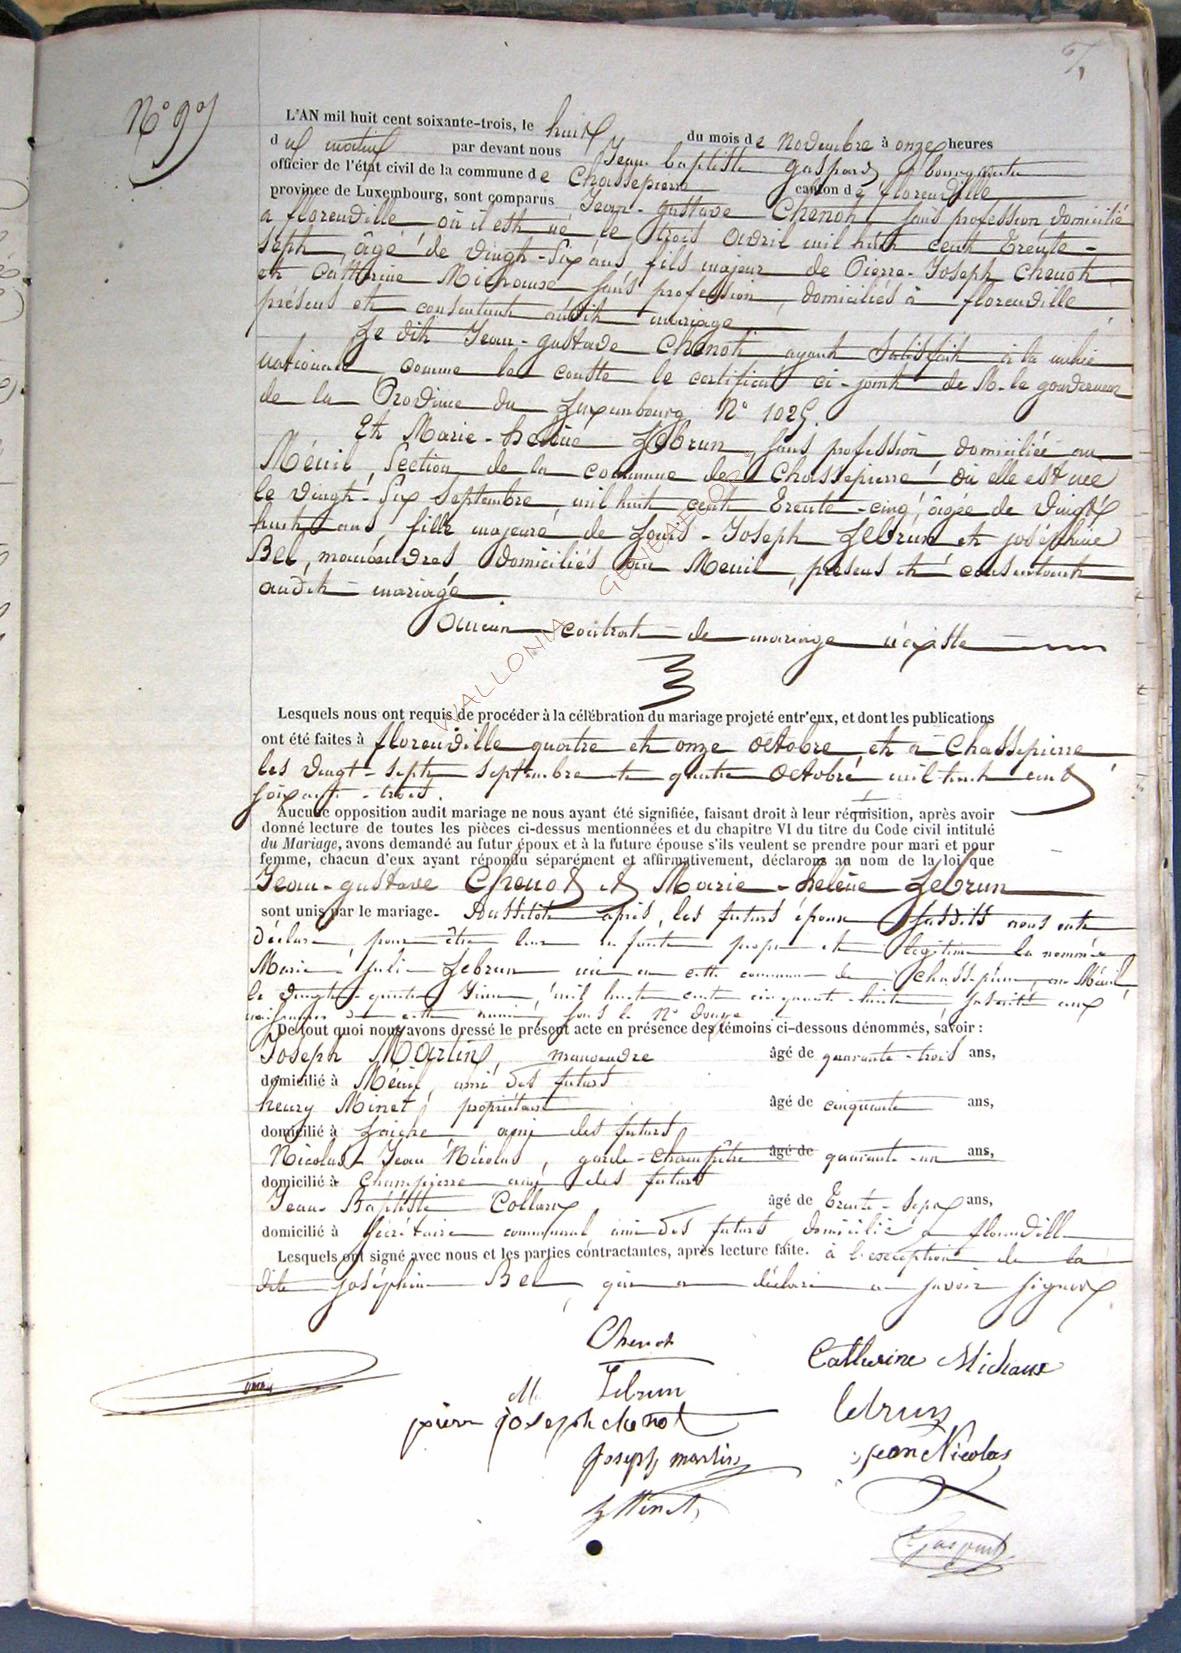 N° 9
L'AN mil huit cent soixante-trois, le huit du mois de Novembre à onze heures
du matin par devant nous Jean Baptiste Gaspard, bourgmestre
officier de l'état civil de la commune de Chassepierre canton de florenville
province de Luxembourg, sont comparus Jean-gustave Chenot, sans profession domicilié
à florenville où il est né le trois avril mil huit cent trente-
sept, âgé de vingt-six ans fils majeur de Pierre-Joseph Chenot
et Catherine Michaux sans profession, domiciliés à florenville,
présens et consentant audit mariage
Le dit Jean-gustave Chenot ayant satisfait à la milice
nationale comme le conste le certificat ci-joint de M. le gouverneur
de la Province du Luxembourg N° 1025.
Et Marie-heleine Lebrun, sans profession domiciliée au
Ménil, section de la commune de Chassepierre où elle est née
le vingt-six septembre mil huit cent trente-cinq, âgée de vingt
huit ans fille majeure de Louis-Joseph Lebrun et joséphine
Bel, manœuvres domiciliés au Menil, présens et consentant
audit mariage
Aucun contrat de mariage n'existe
Lesquels nous ont requis de procéder à la célébration du mariage projeté entr'eux, et dont les publications
ont été faites à florenville quatre et onze octobre et à Chassepierre
les vingt-sept septembre et quatre octobre mil huit cent
soixante-trois.
Aucune opposition audit mariage ne nous ayant été signifiée, faisant droit à leur réquisition, après avoir
donné lecture de toutes les pièces ci-dessus mentionnées et du chapitre VI du titre du Code civil intitulé
du Mariage, avons demandé au futur époux et à la future épouse s'ils veulent se prendre pour mari et pour
femme, chacun d'eux ayant répondu séparément et affirmativement, déclarons au nom de la loi que
Jean-gustave Chenot et Marie-heleine Lebrun
sont unis par le mariage. Aussitôt après, les futurs époux susdits nous ont
déclaré, pour être leur enfant propre et légitime la nommée
Marie Julie Lebrun née en cette commune de Chassepierre, au Ménil
le vingt-quatre Juin, mil huit cent cinquante-huit inscrite aux
naissances de cette année, sous le N° douze
De tout quoi nous avons dressé le présent acte en présence des témoins ci-dessous dénommés, savoir :
Joseph Martin, manœuvre âgé de quarante-trois ans,
domicilié à Ménil, ami des futurs
henry Minet, propriétaire âgé de cinquante ans,
domicilié à Laiche ami des futurs
Nicolas Jean Nicolas, garde-champêtre âgé de quarante-un ans,
domicilié à Champierre ami des futurs
Jean-Baptiste Collard âgé de trente-sept ans,
domicilié à secrétaire communal ami des futurs, domicilié à florenville
Lesquels ont signé avec nous et les parties contractantes, après lecture faite. à l'exception de la
dite joséphine Bel, qui a déclaré ne savoir signer
Chenot
Catherine Michaux
M. Lebrun
Lebrun
pierre joseph chenot
Joseph martin
jean Nicolas
h Minet
Gaspard
WALLONIA GENEAFLORE